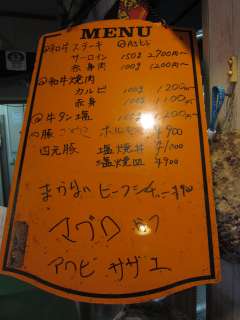 MENU
和牛ステーキ
サーロイン 150g 2700円〜
赤身肉 100g 1200円〜
和牛焼肉
カルビ 100g 1200〜
赤身 100g 1100〜
牛タン塩 100g 1200〜
豚 ホルモン ¥900
四元豚 塩焼丼 ¥1000
塩焼皿 ¥900
まかない ビーフシチュー ¥900
マグロ
アワビ サザエ